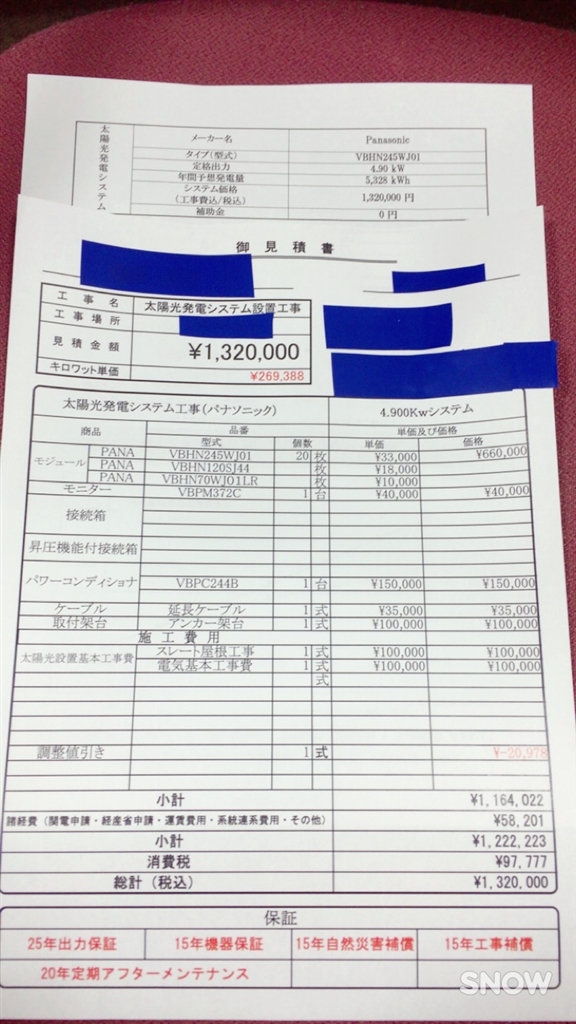 太陽光発電システム
メーカー名 Panasonic
タイプ(型式) VBHN245WJ01
定格出力 4.90 kW
年間予想発電量 5,328 kWh
システム価格 (工事費込/税込) 1,320,000 円
補助金 0 円
御見積書
工事名 太陽光発電システム設置工事
工事場所
見積金額 ¥1,320,000
キロワット単価 ¥269,388
太陽光発電システム工事(パナソニック) 4.900Kwシステム
商品 品番 単価及び価格
型式 個数 単価 価格
モジュール PANA VBHN245WJ01 20 枚 ¥33,000 ¥660,000
PANA VBHN120SJ44 枚 ¥18,000
PANA VBHN70WJ01LR 枚 ¥10,000
モニター VBPM372C 1 台 ¥40,000 ¥40,000
接続箱
昇圧機能付接続箱
パワーコンディショナ VBPC244B 1 台 ¥150,000 ¥150,000
ケーブル 延長ケーブル 1 式 ¥35,000 ¥35,000
取付架台 アンカー架台 1 式 ¥100,000 ¥100,000
施工費用
太陽光設置基本工事費 スレート屋根工事 1 式 ¥100,000 ¥100,000
電気基本工事費 1 式 ¥100,000 ¥100,000
式
調整値引き 1 式 ¥-20,978
小計 ¥1,164,022
諸経費(関電申請・経産省申請・運賃費用・系統連系費用・その他) ¥58,201
小計 ¥1,222,223
消費税 ¥97,777
総計(税込) ¥1,320,000
保証
25年出力保証 15年機器保証 15年自然災害補償 15年工事補償
20年定期アフターメンテナンス
SNOW